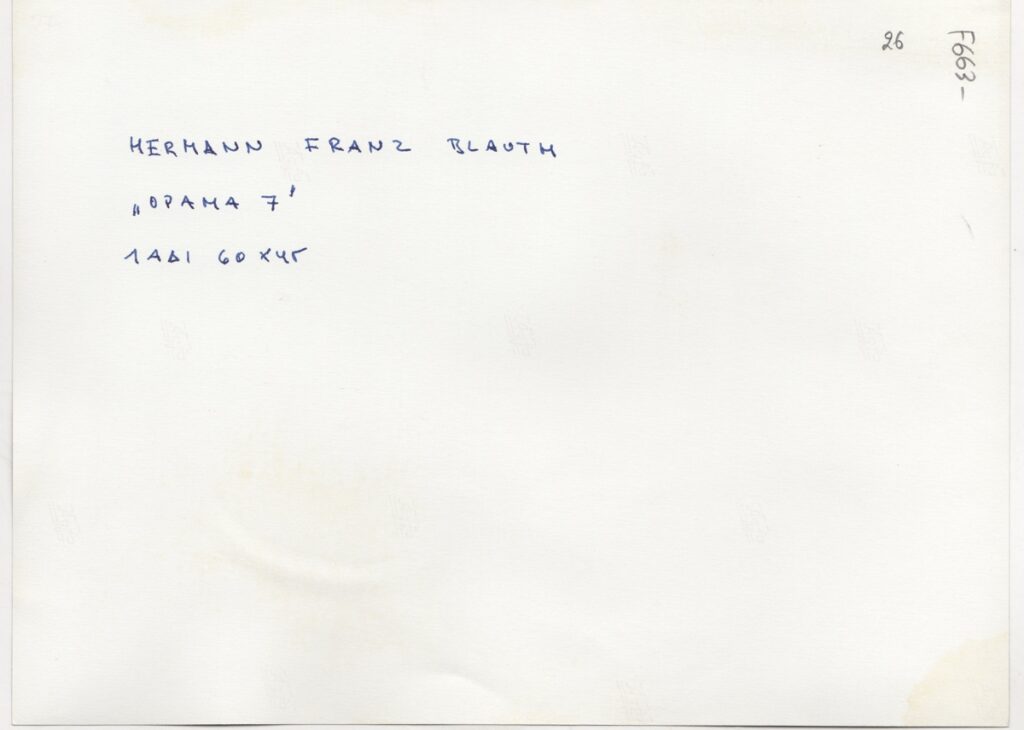 26
F663-
HERMANN FRANZ BLAUTH
„ΟΡΑΜΑ 7"
ΛΑΔΙ 60 x 45